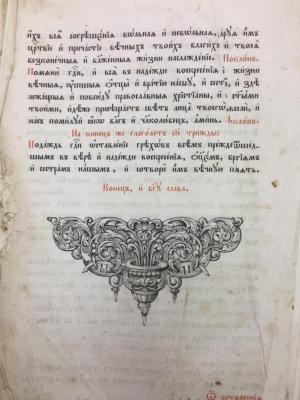 и҆́хъ всѧ̑ согрѣшє́нїѧ вѡ́льнаѧ и҆ невѡ́льнаѧ, да́рꙋѧ и҆̀мъ
ца́рствїе и҆ прича́стїе вѣ́чныхъ твои́хъ благи́хъ и҆ твоеѧ̀
безконе́чныѧ и҆ блаже́нныѧ жи́зни наслажде́нїе. Покло́нъ.
Помѧнѝ гд҇и, и҆ всѧ̑ въ наде́жди воскресе́нїѧ и҆ жи́зни
вѣ́чныѧ, ᲂу҆со́пшыѧ ѻ҆тцы̀ и҆ бра́тїю на́шꙋ, и҆ сестры̀, и҆ здѣ̀
лежа́щыѧ и҆ повсю́дꙋ правосла́вныѧ хрⷭ҇тїа́ны, и҆ со ст҃ы́ми
твои́ми, и҆дѣ́же присѣща́етъ свѣ́тъ лица̀ твоегѡ̀, вселѝ, и҆
на́съ поми́лꙋй ꙗ҆́кѡ бл҃гъ и҆ чл҃вѣколю́бецъ, а҆ми́нь. Покло́нъ.
На коне́цъ же глаго́летъ сїѐ три́жды:
Пода́ждь гд҇и ѡ҆ставле́нїе грѣхѡ́въ всѣ́мъ преждеѿше́д-
шымъ въ вѣ́рѣ и҆ наде́жди воскресе́нїѧ, ѻ҆тцє́мъ, бра́тїѧмъ
и҆ сестра́мъ на́шымъ, и҆ сотворѝ и҆̀мъ вѣ́чнꙋю па́мѧть.
Коне́цъ, и҆ бг҃ꙋ сла́ва.